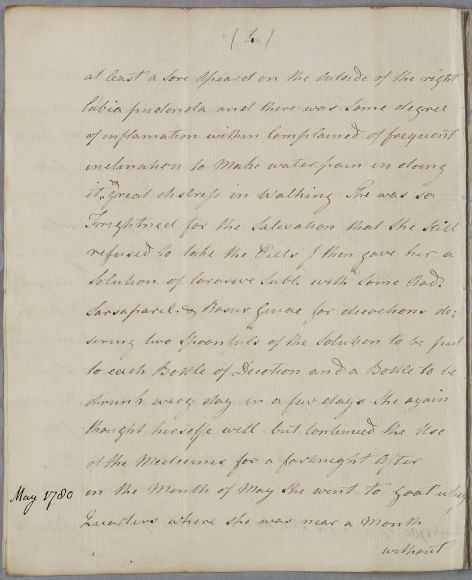 (4)
at least a sore apeard on the outside of the right
Labia pudenda and there was some degree
of inflamation within Complained of frequent
inclination to Make water pain in doing
it, & great distress in Walking She was so
Frightned for the Salevation that she still
refused to take the Pills I then gave her a
Solution of Corosive Subl. with Some Rad.
Sarsaparel. & Rasur Guiac for decoctions de-
siring two spoonfuls of the Solution to be put
to each Bottle of Decotion and a Bottle to be
drunk every day in a few days She again
thought herselfe well but Continued the Use
of the Medecins for a fortnight After
May 1780
in the Month of May She went to goat whey
Quarters where she was near a Month
without